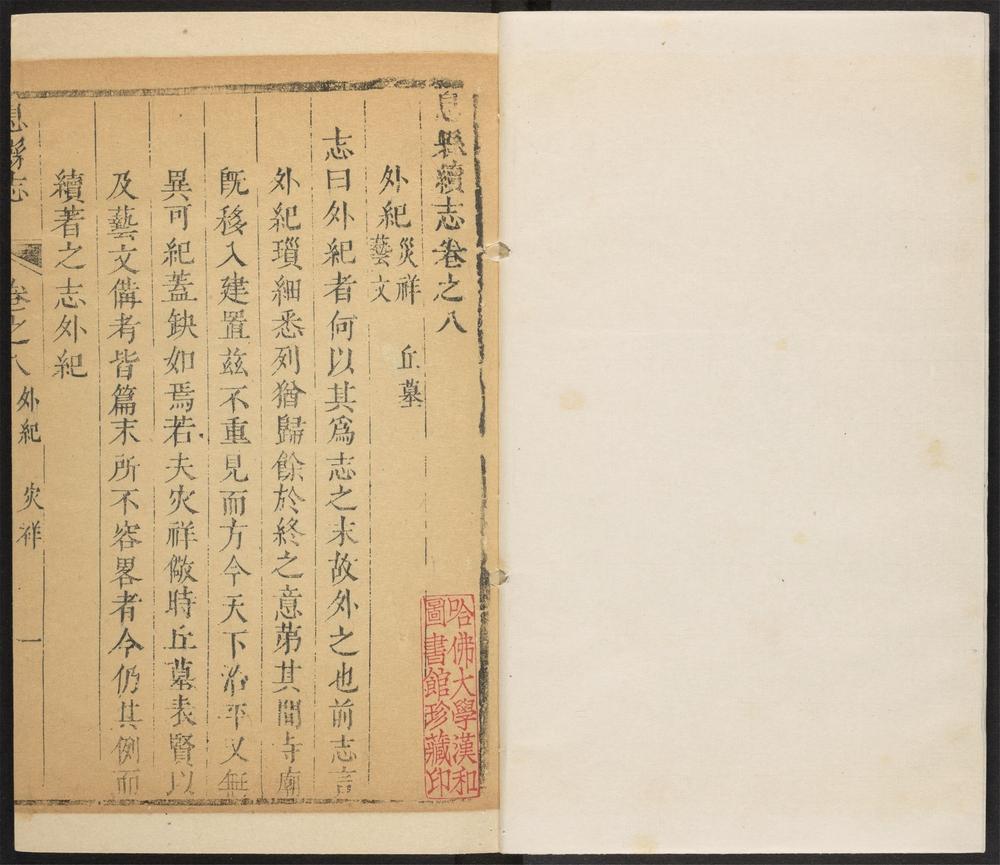 息縣續志卷之八
外紀 災祥 丘墓
藝文
志曰外紀者何以其爲志之末故外之也前志言
外紀瑣細悉列猶歸餘於終之意第其間寺廟
旣移入建置茲不重見而方今天下治平又無
異可紀蓋缺如焉若夫灾祥儆時丘墓表賢以
及藝文備考皆篇末所不容畧者今仍其例而
續著之志外紀
息縣志 卷之八 外紀 灾祥 一
哈佛大學漢和
圖書館珍藏印